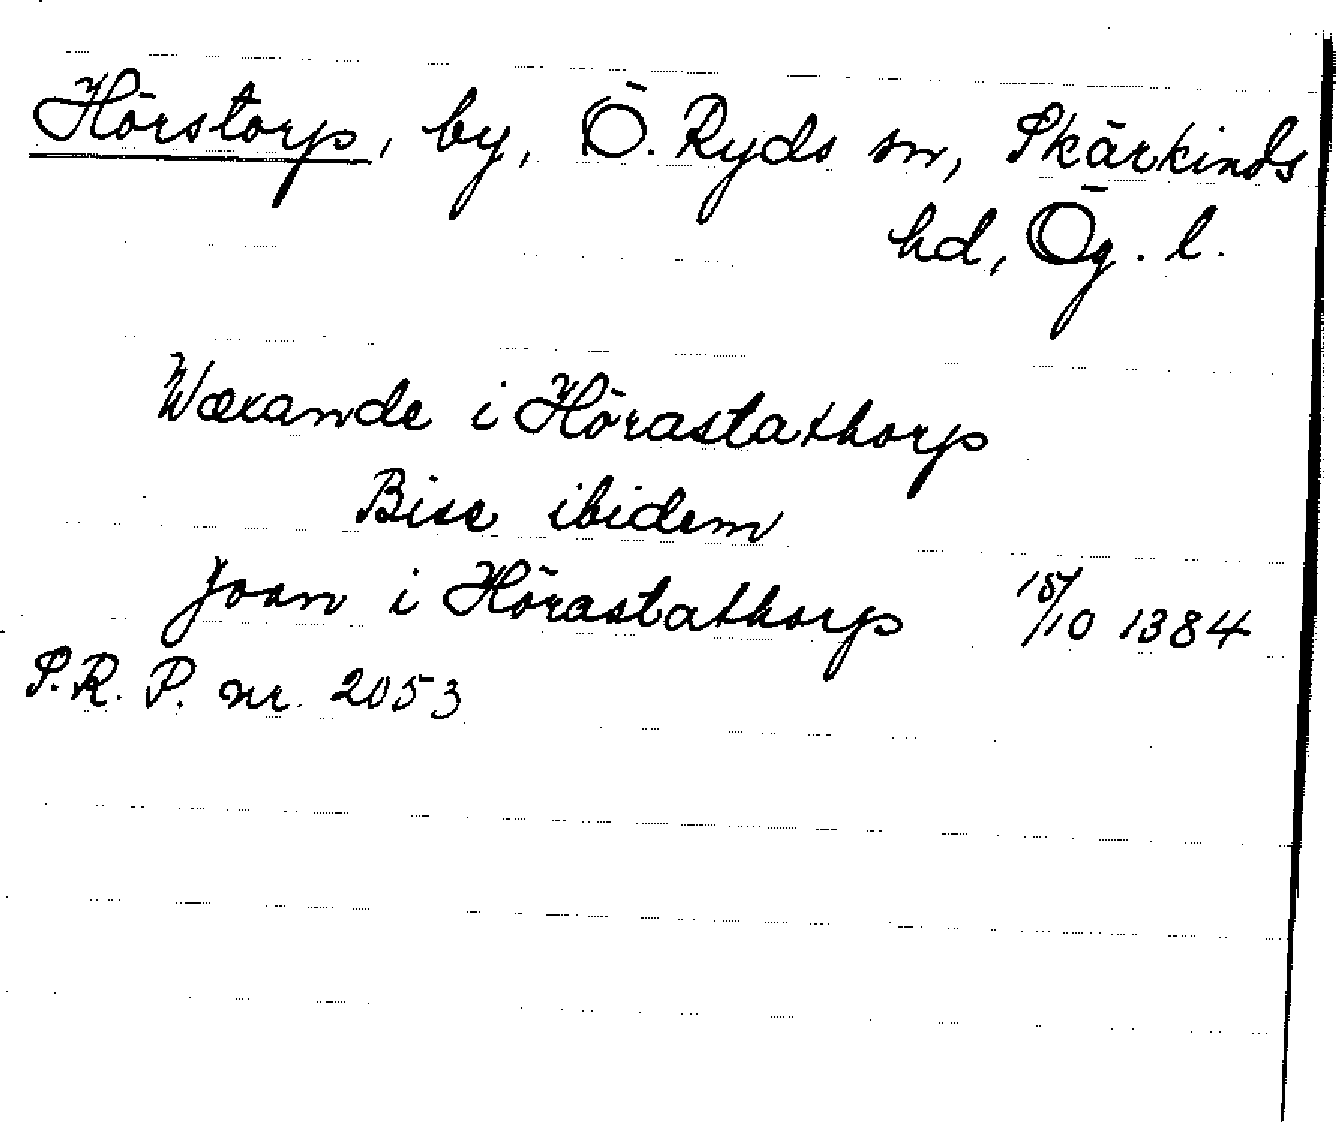 Hörstorp, by, Ö. Ryds sn, Skärkinds
hd, Ög. l.
Wærande i Hörastathorp
Bise ibidem
Joan i Hörastathorp 15/10 1384
S.R.P. nr. 2053